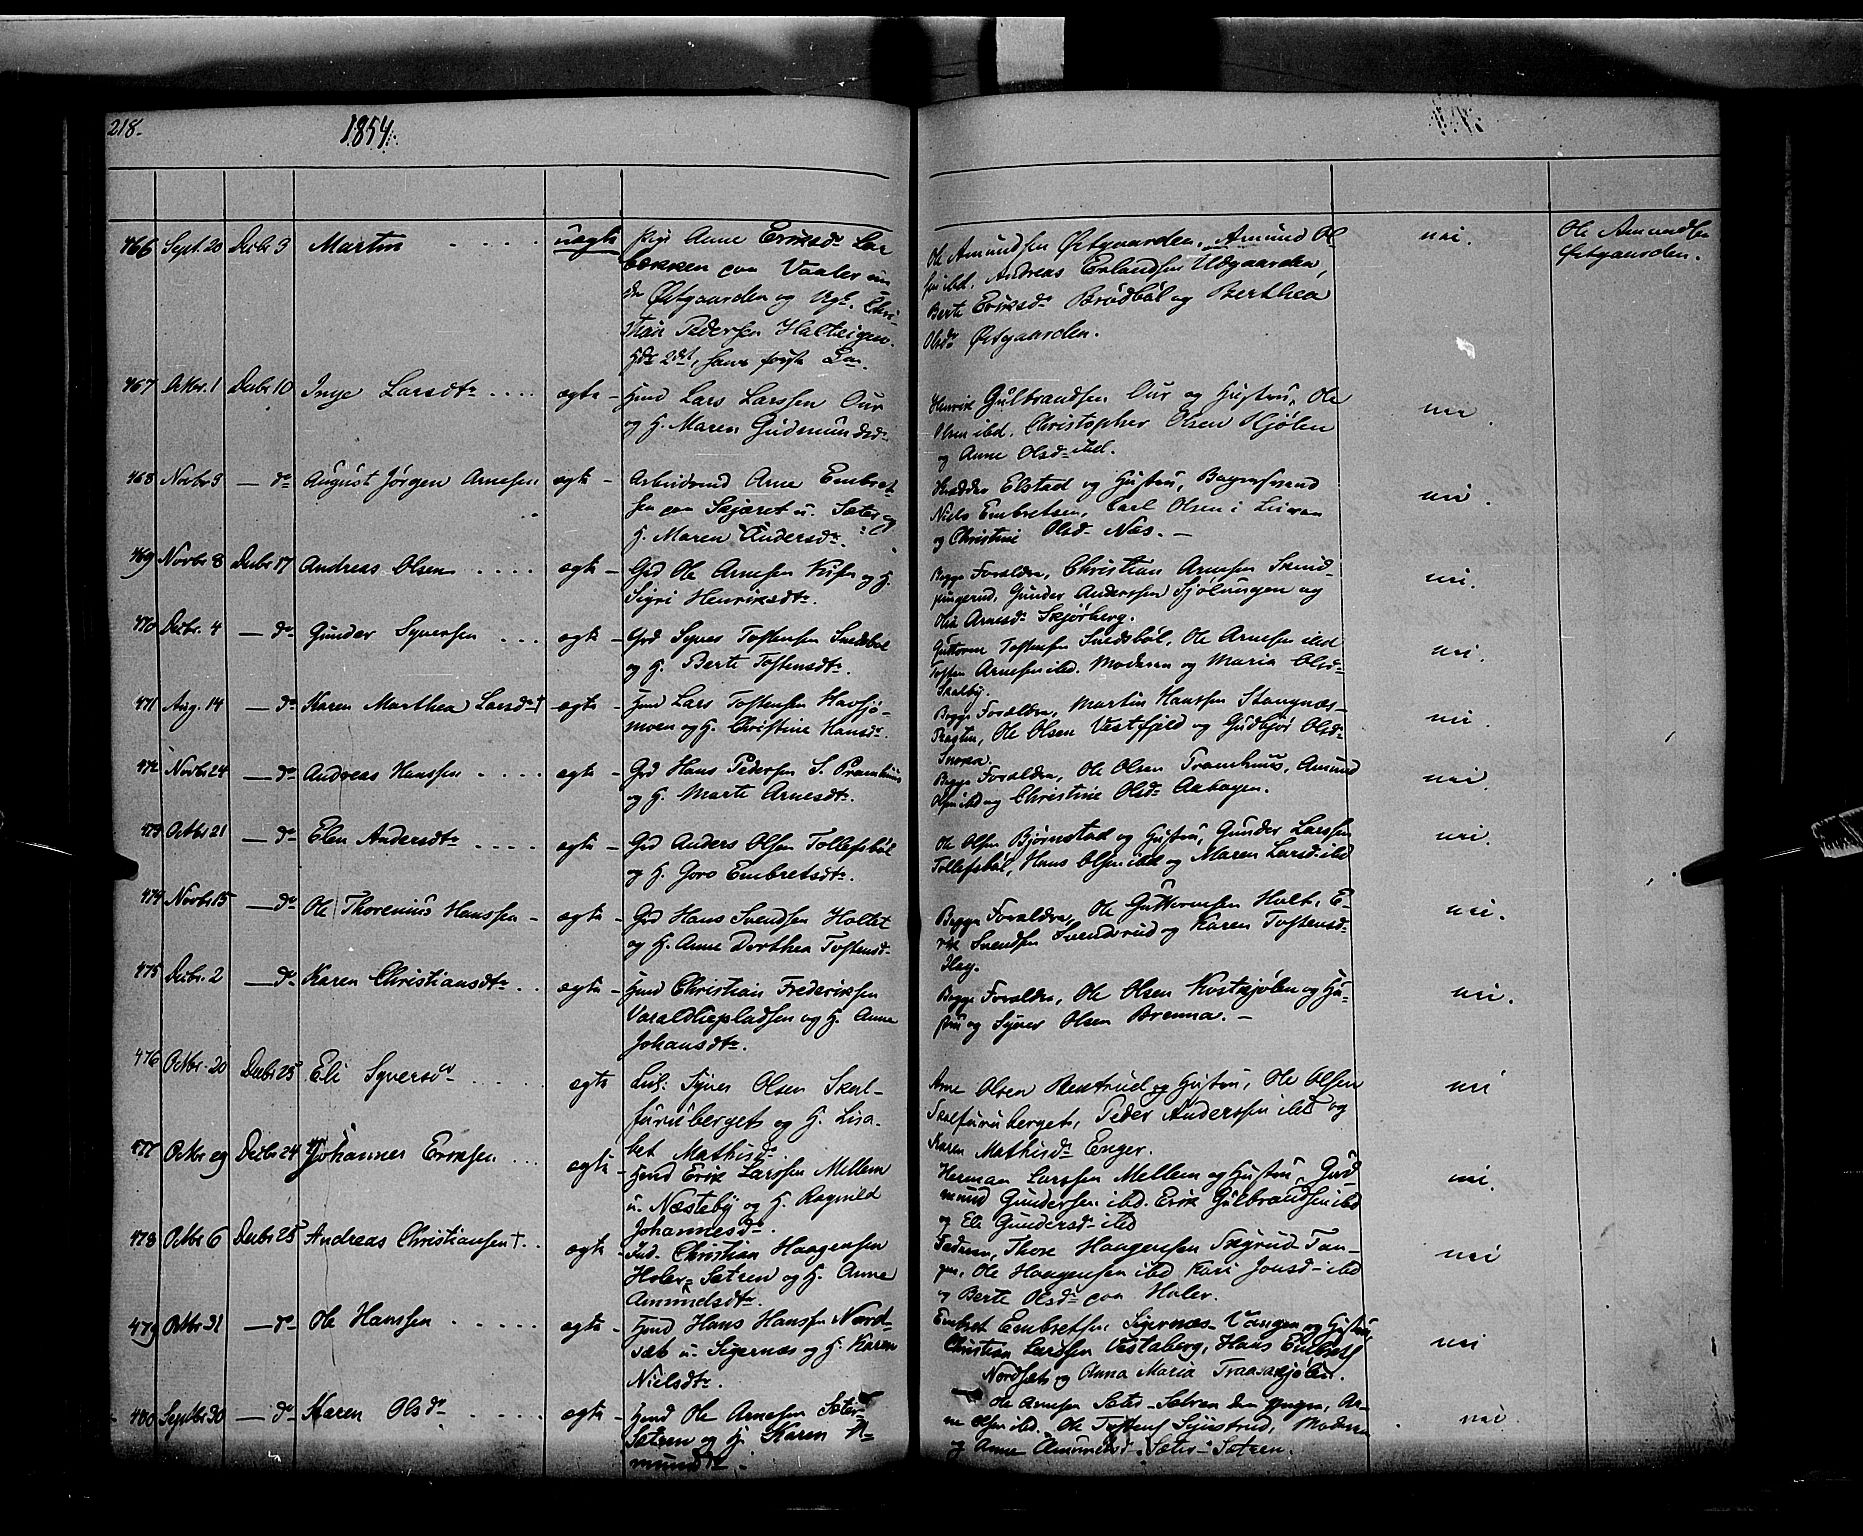 218.
1854.
466 Sept. 20 Decbr 3 Martin uægte Pige Anne Eriksdr Lar-
bækken paa Vaaler un-
der Østgaarden og Ugk. Chri-
stian Pedersen Halteigen.
hds 2det, hans første Lm.
Ole Amundsen Østgaarden, Amund Ol-
sen ibd. Andreas Erlandsen Udgaarden,
Berte Eriksdr Brødbøl og Berthea
Olsdr Østgaarden.
nei.
Ole Amundsen
Østgaarden.
467 Octbr. 1 Decbr 10 Inge Larsdtr ægte Hmd Lars Larssen Our
og H. Maren Gudmundsdr
Henrik Gulbrandsen Our og Hustru, Ole
Olsen ibd. Christopher Olsen Kjølen
og Anne Olsd ibd.
nei.
468 Novbr 5 — do August Jørgen Arnesen ægte Arbeidsmd Arne Embret
sen paa Skjæret u. Sæter og
H. Maren Andersdr.
Skrædder Elstad og Hustru, Bagersvend
Niels Embretsen, Carl Olsen i
og Christine Olsd Næs. —
nei.
469 Novbr 8 Decbr 17 Andreas Olsen ægte Grd Ole Arnesen og H.
Sigri Henriksdtr.
Begge Forældre, Christian Arnesen
Gunder Anderssen Sjølungen og
Olia Arnesdr Skjørberg.
nei.
470 Decbr. 4 — do Gunder Syversen ægte Grd Syver Tostensen Snedsbøl
og H. Berte Tostensdtr.
Guttorm Tostensen Snedsbøl, Ole Arnesen ibd
Tosten Arnesen ibd. Moderen og Maria Olsd
Skalby.
nei.
471 Aug. 14 — do Karen Marthea Larsdr † ægte Hmd Lars Tostensen Havsjø-
moen og H. Christine Hansdr.
Begge Forældre, Martin Hanssen Stangnæs-
Ole Olsen Vestfjeld og Gudbjør Olsd
nei.
472 Novbr 24 — do Andreas Hanssen ægte Grd Hans Pedersen S. Pramhuus
og H. Marte Arnesdtr.
Begge Forældre, Ole Olsen Pramhuus, Amund
Olsen ibd og Christine Olsdr Aabogen.
nei.
473 Octbr 21 — do Elen Andersdtr ægte Grd Anders Olsen Tollefsbøl
og H. Goro Embretsdtr.
Ole Olsen Bjørnstad og Hustru, Gunder Larssen
Tollefsbøl, Hans Olsen ibd og Maren Larsd ibd
nei.
474 Novbr 15 — do Ole Thorenius Hanssen ægte Grd Hans Svendsen Holtet
og H. Anne Dorthea Tostensd
Begge Forældre, Ole Guttormsen Holt, E-
rik Svendsen Svendsrud og Karen Tostensd
nei.
475 Decbr. 2 — do Karen Christiansdtr ægte Hmd Christian Frederiksen
Varaldliepladsen og H. Anne
Johansdtr.
Begge Forældre, Ole Olsen Kostkjølen og Hu-
stru og Syver Olsen Brenna. —
nei.
476 Octbr. 20 Decbr 25 Eli Syversdr ægte Syver Olsen Skal-
furuberget og H. Lisa-
bet Mathisdr.
Arne Olsen og Hustru, Ole Olsen
Skalfuruberget, Peder Anderssen ibd og
Karen Mathisdr Enger.
nei
477 Octbr 29 Decbr 24 Johannes Eriksen ægte Hmd Erik Larssen Mellem
u. Næsteby og H. Ragnild
Johannesdr.
Herman Larssen Mellem og Hustru, Gud-
mund Gundersen ibd. Erik Gulbrandsen ibd
og Eli Gundersd ibd
nei.
478 Octbr 6 Decbr 25 Andreas Christiansen † ægte Ind. Christian Haagensen
Holer-Sætren og H. Anne
Amundsdtr.
Faderen, Thore Haagensen Tan-
gen, Ole Haagensen ibd Kari Jonsd ibd
og Berte Olsdr paa Holer.
nei
479 Octbr 31 — do Ole Hanssen ægte Hmd Hans Hanssen Nord
sæt u. Sigernæs og H. Karen
Nielsdtr.
Embret Embretsen Sigernæs-Vangen og Hustru,
Christian Larssen Vestaberg, Hans Embrets
Nordsæt og Anna Maria Traasækjølen.
nei
480 Septbr 30 — do Karen Olsdr ægte Hmd Ole Arnesen Sæter-
Sætren og H. Karen A-
mundsdtr.
Ole Arnesen Sæter-Sætren den yngre, Ar-
ne Olsen ibd. Ole Tostens Moderen
og Anne Amundsd Sæter-Sætren.
nei.